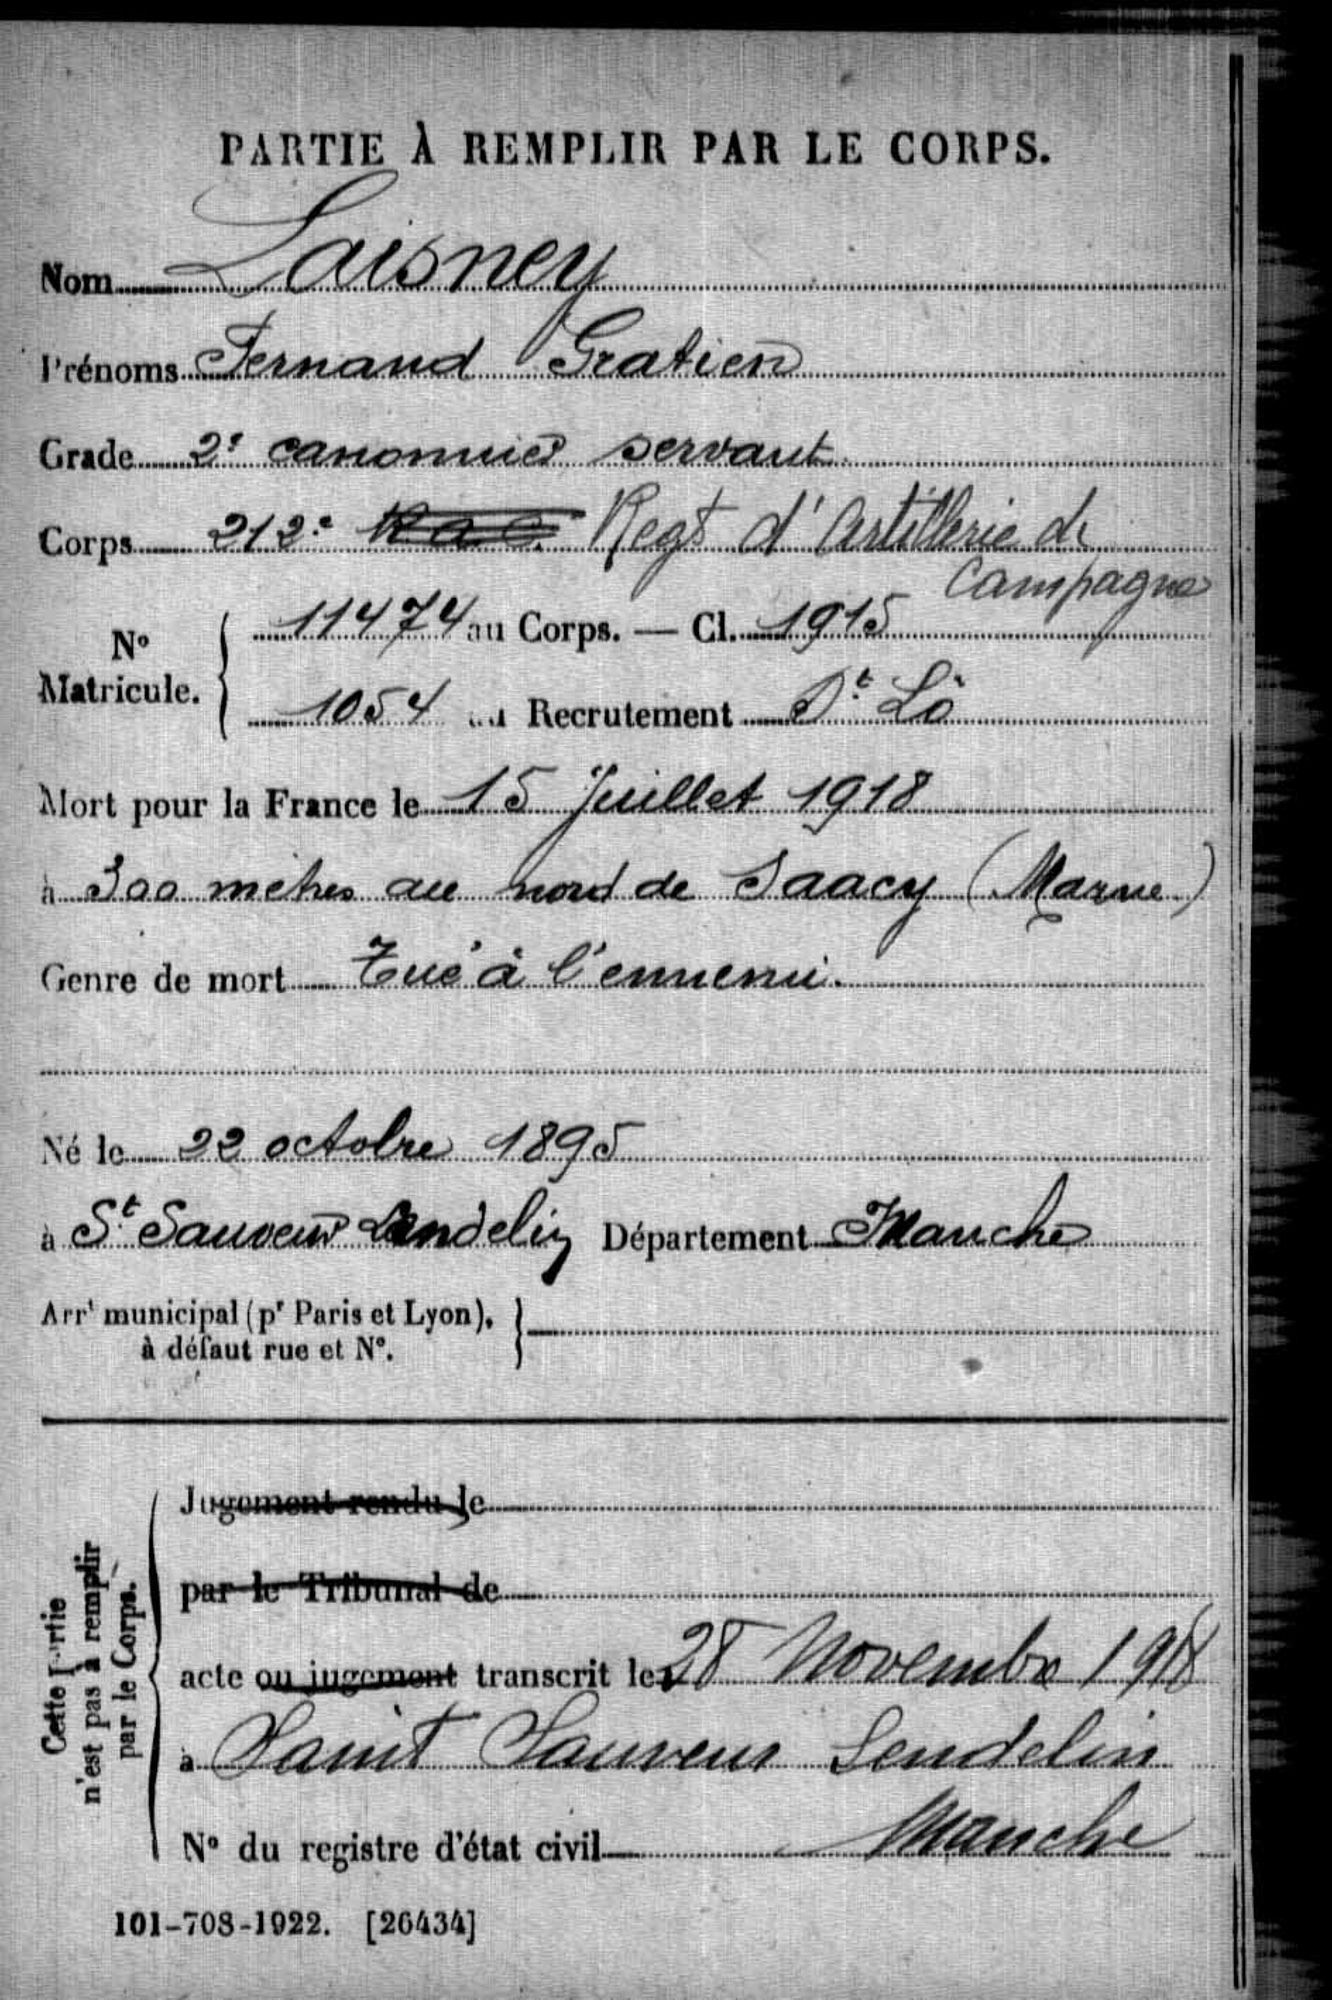 PARTIE À REMPLIR PAR LE CORPS.
Nom Laisney
Prénoms Fernand Gratien
Grade 2e canonnier servant
Corps 212e R.a.c. Regt d'Artillerie de
Campagne
N° Matricule. 11474 au Corps. — Cl. 1915
1054 au Recrutement St Lô
Mort pour la France le 15 Juillet 1918
à 300 mètres au nord de Saacy (Marne)
Genre de mort Tué à l'ennemi.
Né le 22 octobre 1895
à St Sauveur Lendelin Département Manche
Arrt municipal (pr Paris et Lyon),
à défaut rue et N°.
Cette Partie
n'est pas à remplir
par le Corps.
Jugement rendu le
par le Tribunal de
acte ou jugement transcrit le 28 Novembre 1918
à Saint Sauveur Lendelin
N° du registre d'état civil Manche
101-708-1922. [26434]